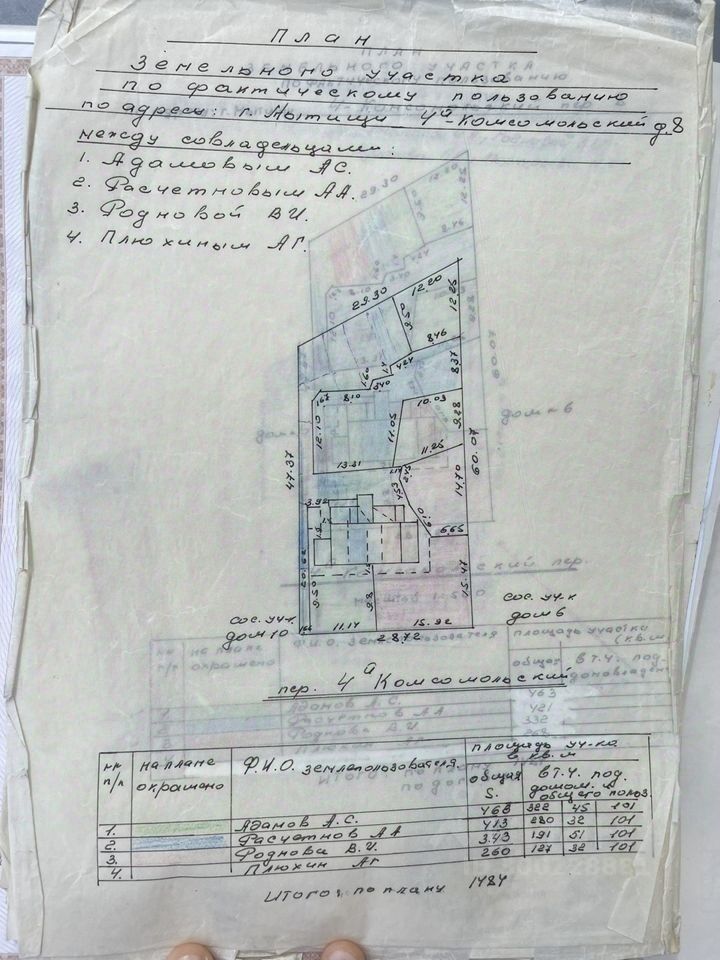 План
Земельноно участка
по фактическому пользованию
по адресу: г. Мытищи 4й Комсомольский д.8
между совладельцами:
1. Адамовым А.С.
2. Расчетновым А.А.
3. Родновой В.И.
4. Плюхиным А.Г.
29.30
12.20
12.25
9.50
8.46
4.24
8.37
1.60
3.40
1.67
8.10
10.03
12.10
11.05
9.28
60.07
11.25
13.31
47.37
14.70
3.92
6.65
20.62
9.50
9.8
15.47
сос. уч-к
дом 6
сос. уч-к
дом 10
1.66
11.14
15.92
28.72
пер. 4й Комсомольский
нн п/п
на плане окрашено
Ф.И.О. землепользователя
площадь уч-ка в кв.м
общая S.
в т.ч. под домом и общего польз.
1. Адамов А.С. 468 322 45 101
2. Расчетнов А А 413 280 32 101
3. Роднова В.И. 3.43 191 51 101
4. Плюхин А Г 260 127 32 101
Итого: по плану 1484